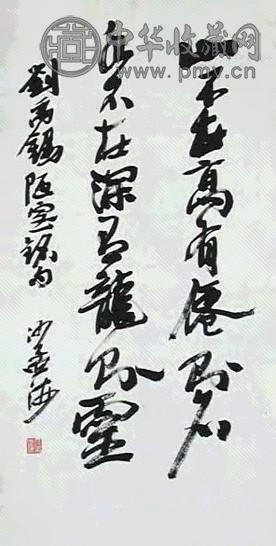 中华收藏网
www.pmv.cn
山不在高有僊則名
水不在深有龍則靈
劉禹錫陋室銘句 沙孟海